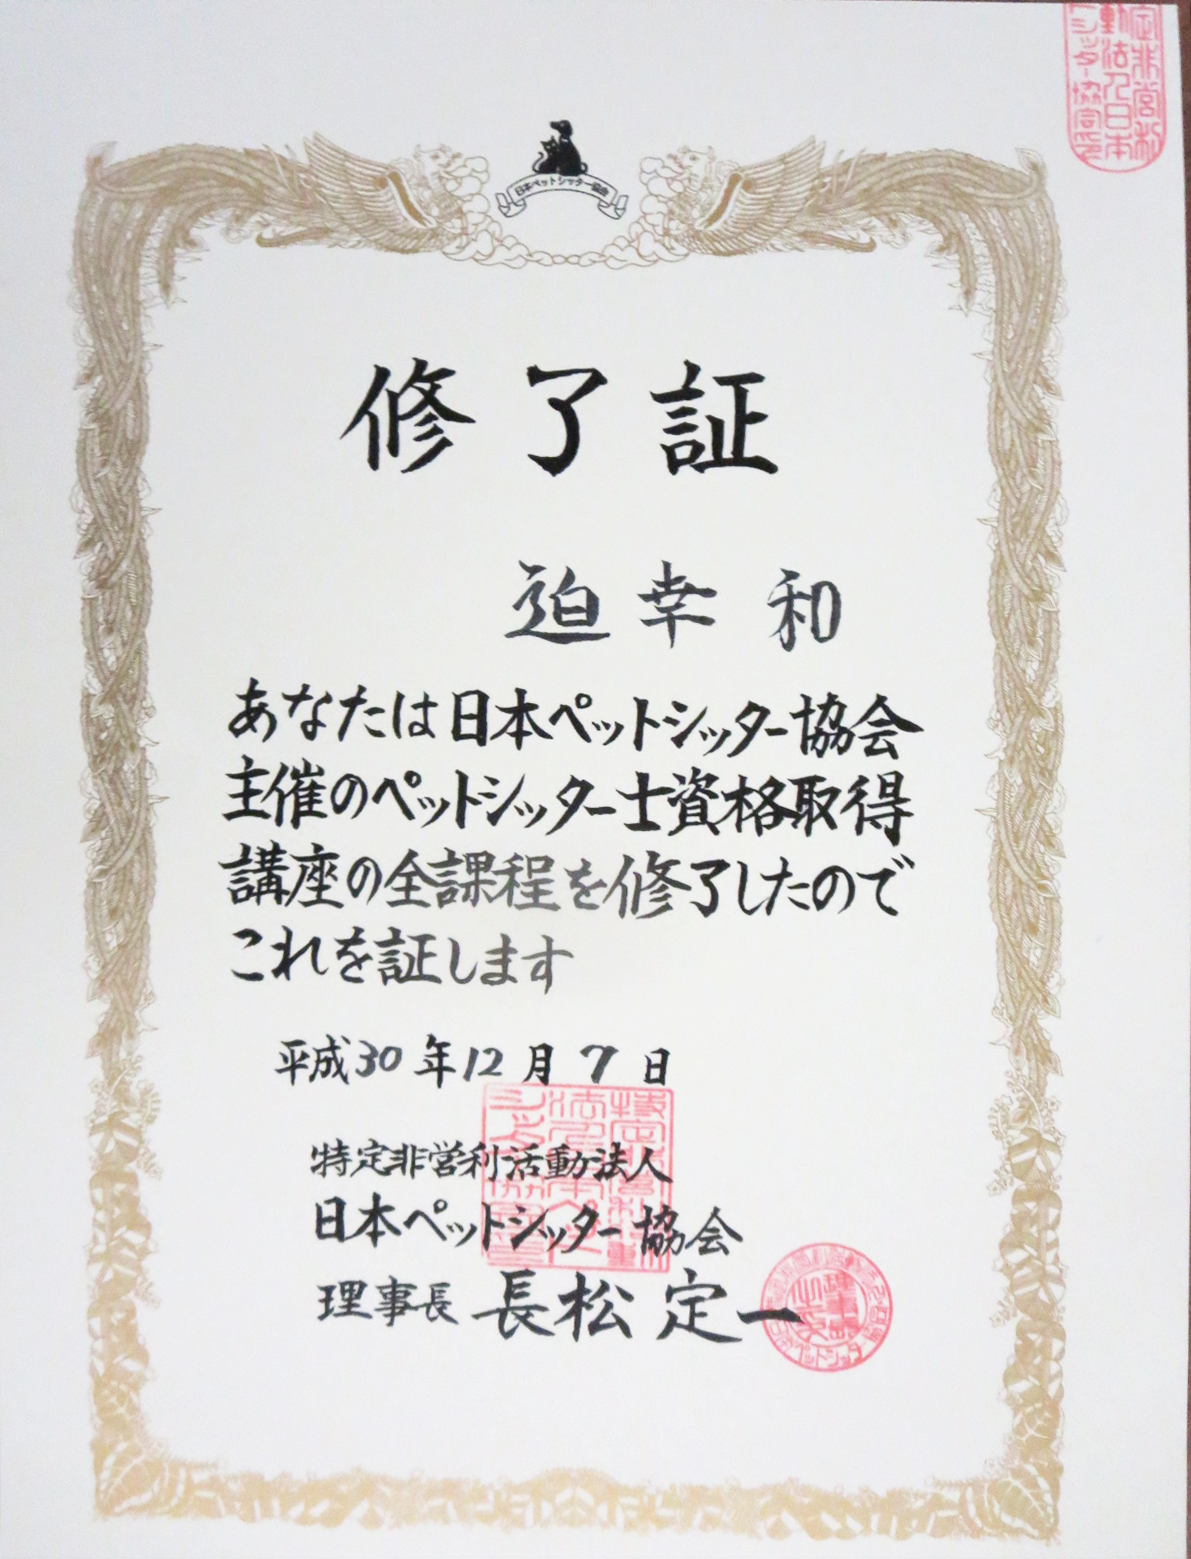 定非営利
動法人日本
トシッター協会印
日本ペットシッター協会
修了証
迫幸和
あなたは日本ペットシッター協会
主催のペットシッター士資格取得
講座の全課程を修了したので
これを証します
平成30年12月7日
特定非営利活動法人
日本ペットシッター協会
理事長 長松定一